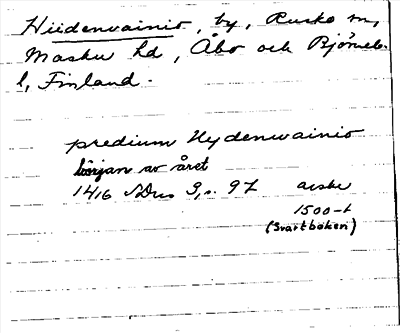 Hiidenvainio, by, Rusko sn,
Masku hd, Åbo och Björneb.
l, Finland.
predium Hydenwainio
början av året
1416 SDns 3, s. 97 avskr
1500-t
(Svartboken)